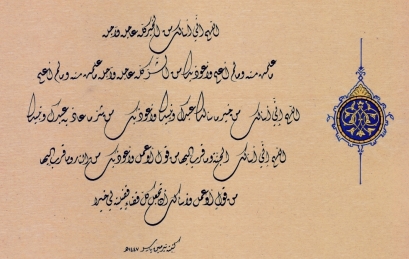 اللهم إني أسألك من الخير كله عاجله وآجله
ما علمت منه وما لم أعلم وأعوذ بك من الشر كله عاجله وآجله ما علمت منه وما لم أعلم
اللهم إني أسألك من خير ما سألك عبدك ونبيك وأعوذ بك من شر ما عاذ به عبدك ونبيك
اللهم إني أسألك الجنة وما قرب إليها من قول أو عمل وأعوذ بك من النار وما قرب إليها
من قول أو عمل وأسألك أن تجعل كل قضاء قضيته لي خيرا